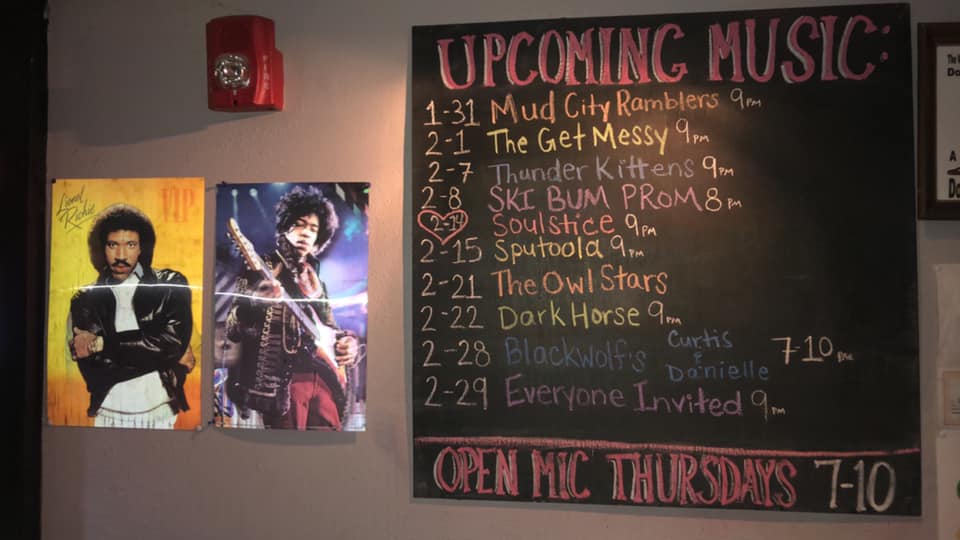 UPCOMING MUSIC:
1-31 Mud City Ramblers 9PM
2-1 The Get Messy 9PM
2-7 Thunder Kittens 9PM
2-8 SKI BUM PROM 8PM
2-14 Soulstice 9PM
2-15 Sputoola 9PM
2-21 The Owl Stars
2-22 Dark Horse 9PM
2-28 Blackwolf's Curtis & Danielle 7-10 PM
2-29 Everyone Invited 9PM
OPEN MIC THURSDAYS 7-10
FIRE
Lionel Richie
VIP
A